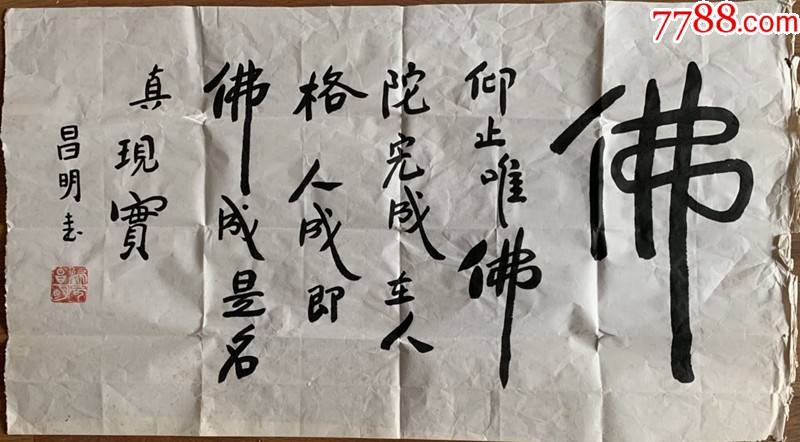 佛
仰止唯佛
陀完成在人
格人成即
佛成是名
真現實
昌明书
7788.com